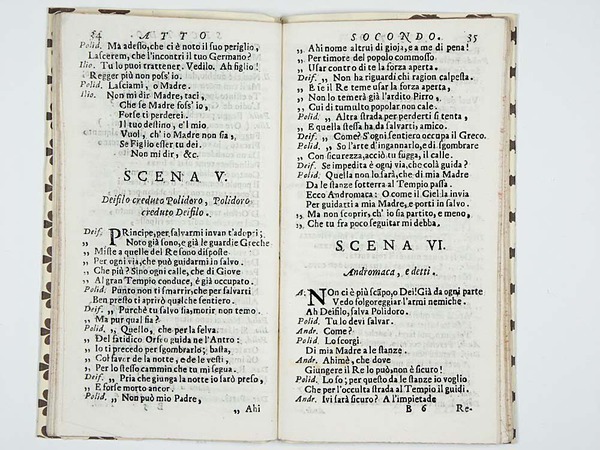 34 ATTO
Polid. Ma adesso, che ci è noto il suo periglio,
Lascerem, che l'incontri il tuo Germano?
Ilio. Tu lo puoi trattener. Vedilo. Ah figlio!
Regger più non poss'io.
Polid. Lasciami, o Madre.
Ilio. Non mi dir Madre, taci,
Che se Madre foss'io,
Forse ti perderei.
Il tuo destino, e'l mio
Vuol, ch'io Madre non sia,
Se Figlio esser tu dei.
Non mi dir, &c.
SCENA V.
Deifilo creduto Polidoro, Polidoro
creduto Deifilo.
Deif. PRincipe, per salvarmi invan t'adopri;
„ Noto già sono, e già le guardie Greche
„ Miste a quelle del Re sono disposte
„ Per ogni via, che può guidarmi in salvo.
„ Che più? Sino ogni calle, che di Giove
„ Al gran Tempio conduce, è già occupato.
Polid. Punto non ti smarrir, che per salvarti
Ben presto ti aprirò qualche sentiero.
Deif. „ Purchè tu salvo sia, morir non temo.
„ Ma pur qual fia?
Polid. „ Quello, che per la selva
„ Del fatidico Orfeo guida ne l'Antro:
„ Io ti precedo per sgombrarlo; basta,
„ Col favor de la notte, e de le vesti,
„ Per lo stesso cammin che tu mi segua.
Deif. „ Pria che giunga la notte io sarò preso,
„ E forse morto ancor.
Polid. „ Non può mio Padre,
„ Ahi
SOCONDO. 35
„ Ahi nome altrui di gioja, e a me di pena!
„ Per timore del popolo commosso
„ Usar contro di te la forza aperta.
Deif. „ Non ha riguardi chi ragion calpesta.
„ E se il Re teme usar la forza aperta,
„ Non lo temerà già l'ardito Pirro,
„ Cui di tumulto popolar non cale.
Polid. „ Altra strada per perderti si tenta,
„ E quella stessa ha da salvarti, amico.
Deif. „ Come? S'ogni sentiero occupa il Greco.
Polid. „ So l'arte d'ingannarlo, e di sgombrare
„ Con sicurezza, acciò tu fugga, il calle.
Deif. Se impedita è ogni via, che colà guida?
Polid. Quella non lo sarà, che di mia Madre
Da le stanze sotterra al Tempio passa.
Ecco Andromaca: O come il Ciel la invia
Per guidatti a mia Madre, e porti in salvo.
„ Ma non scoprir, ch'io sia partito, e meno,
„ Che tu fra poco seguitar mi debba.
SCENA VI.
Andromaca, e detti.
A. NOn ci è più scãpo, o Dei! Già da ogni parte
Vedo folgoreggiar l'armi nemiche.
Ah Deifilo, salva Polidoro.
Polid. Tu lo devi salvar.
Andr. Come?
Polid. Lo scorgi
Di mia Madre a le stanze.
Andr. Ahimè, che dove
Giungere il Re lo può, non è sicuro!
Polid. Lo so; per questo da le stanze io voglio
Che per l'occulta strada al Tempio il guidi.
Andr. Ivi sarà sicuro? A l'impietade
B 6 Re-